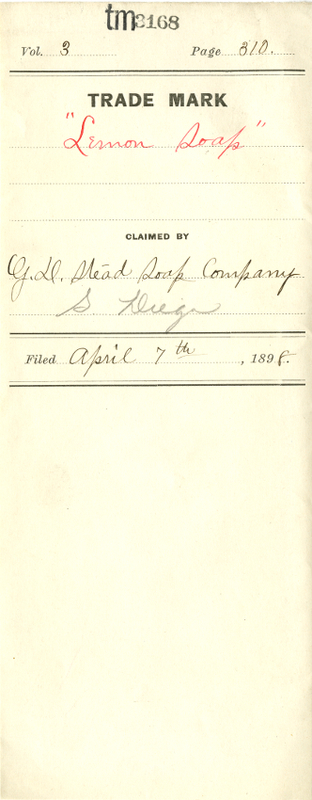 tm3168
Vol. 3 Page 310.
TRADE MARK
"Lemon Soap"
CLAIMED BY
G. H. Stead Soap Company
S Diego
Filed April 7th, 1898.